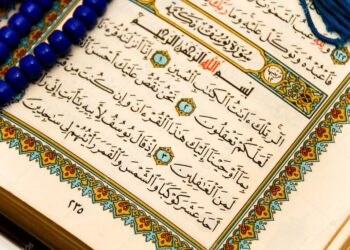 فَاعْبُدْهُ وَتَوَكَّلْ عَلَيْهِ وَمَا رَبُّكَ
سورة يوسف مكية
بِسْمِ اللَّهِ الرَّحْمَٰنِ الرَّحِيمِ
الٓر تِلْكَ آيَاتُ الْكِتَابِ الْمُبِينِ ١ إِنَّا أَنزَلْنَاهُ قُرْآنًا
لَعَلَّكُمْ تَعْقِلُونَ ٢ نَحْنُ نَقُصُّ عَلَيْكَ أَحْسَنَ
بِمَا أَوْحَيْنَا إِلَيْكَ هَٰذَا الْقُرْآنَ وَإِن كُنتَ مِن
لَمِنَ الْغَافِلِينَ ٣ إِذْ قَالَ يُوسُفُ لِأَبِيهِ يَا أَبَتِ إِنِّي
أَحَدَ عَشَرَ كَوْكَبًا وَالشَّمْسَ وَالْقَمَرَ رَأَيْتُهُمْ لِي سَاجِدِينَ
٢٣٥